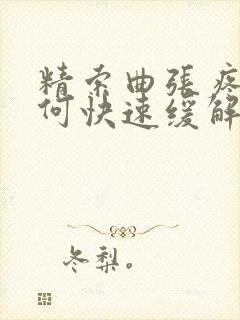 精索曲張疼
何快速缓解
冬梨。